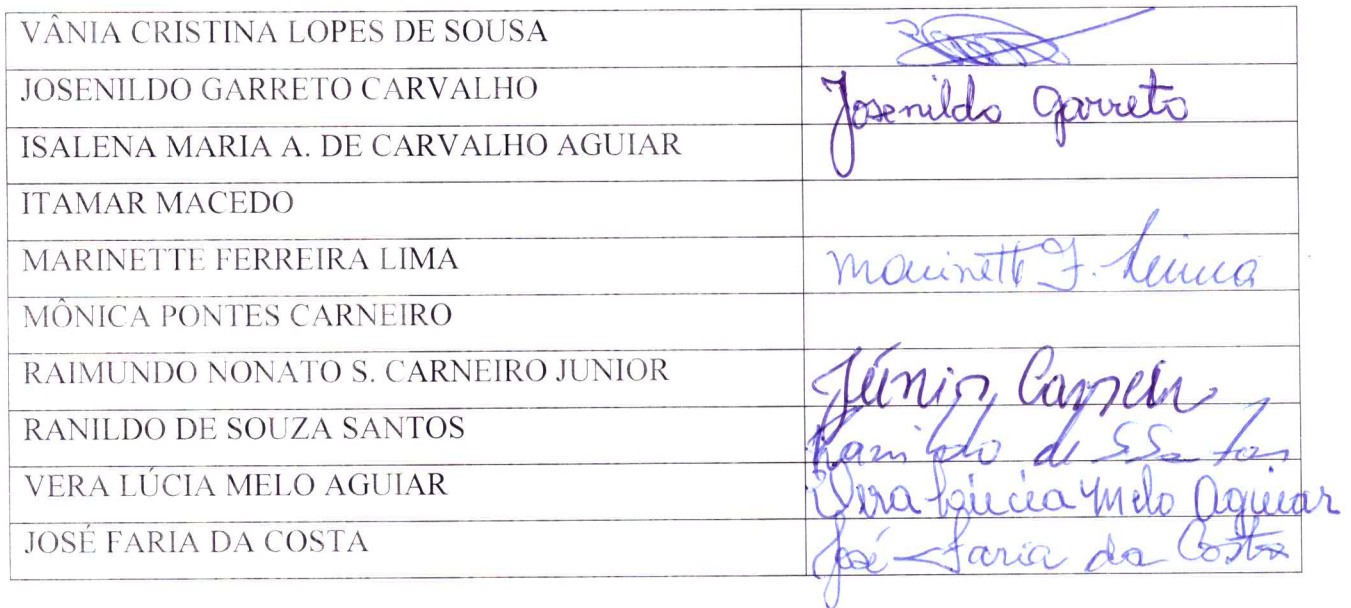 VÂNIA CRISTINA LOPES DE SOUSA
JOSENILDO GARRETO CARVALHO Josenildo Garreto
ISALENA MARIA A. DE CARVALHO AGUIAR
ITAMAR MACEDO
MARINETTE FERREIRA LIMA Marinette F. Lima
MÔNICA PONTES CARNEIRO
RAIMUNDO NONATO S. CARNEIRO JUNIOR Júnior
RANILDO DE SOUZA SANTOS Ranildo de S. Santos
VERA LÚCIA MELO AGUIAR Vera Lúcia Melo Aguiar
JOSÉ FARIA DA COSTA José Faria da Costa